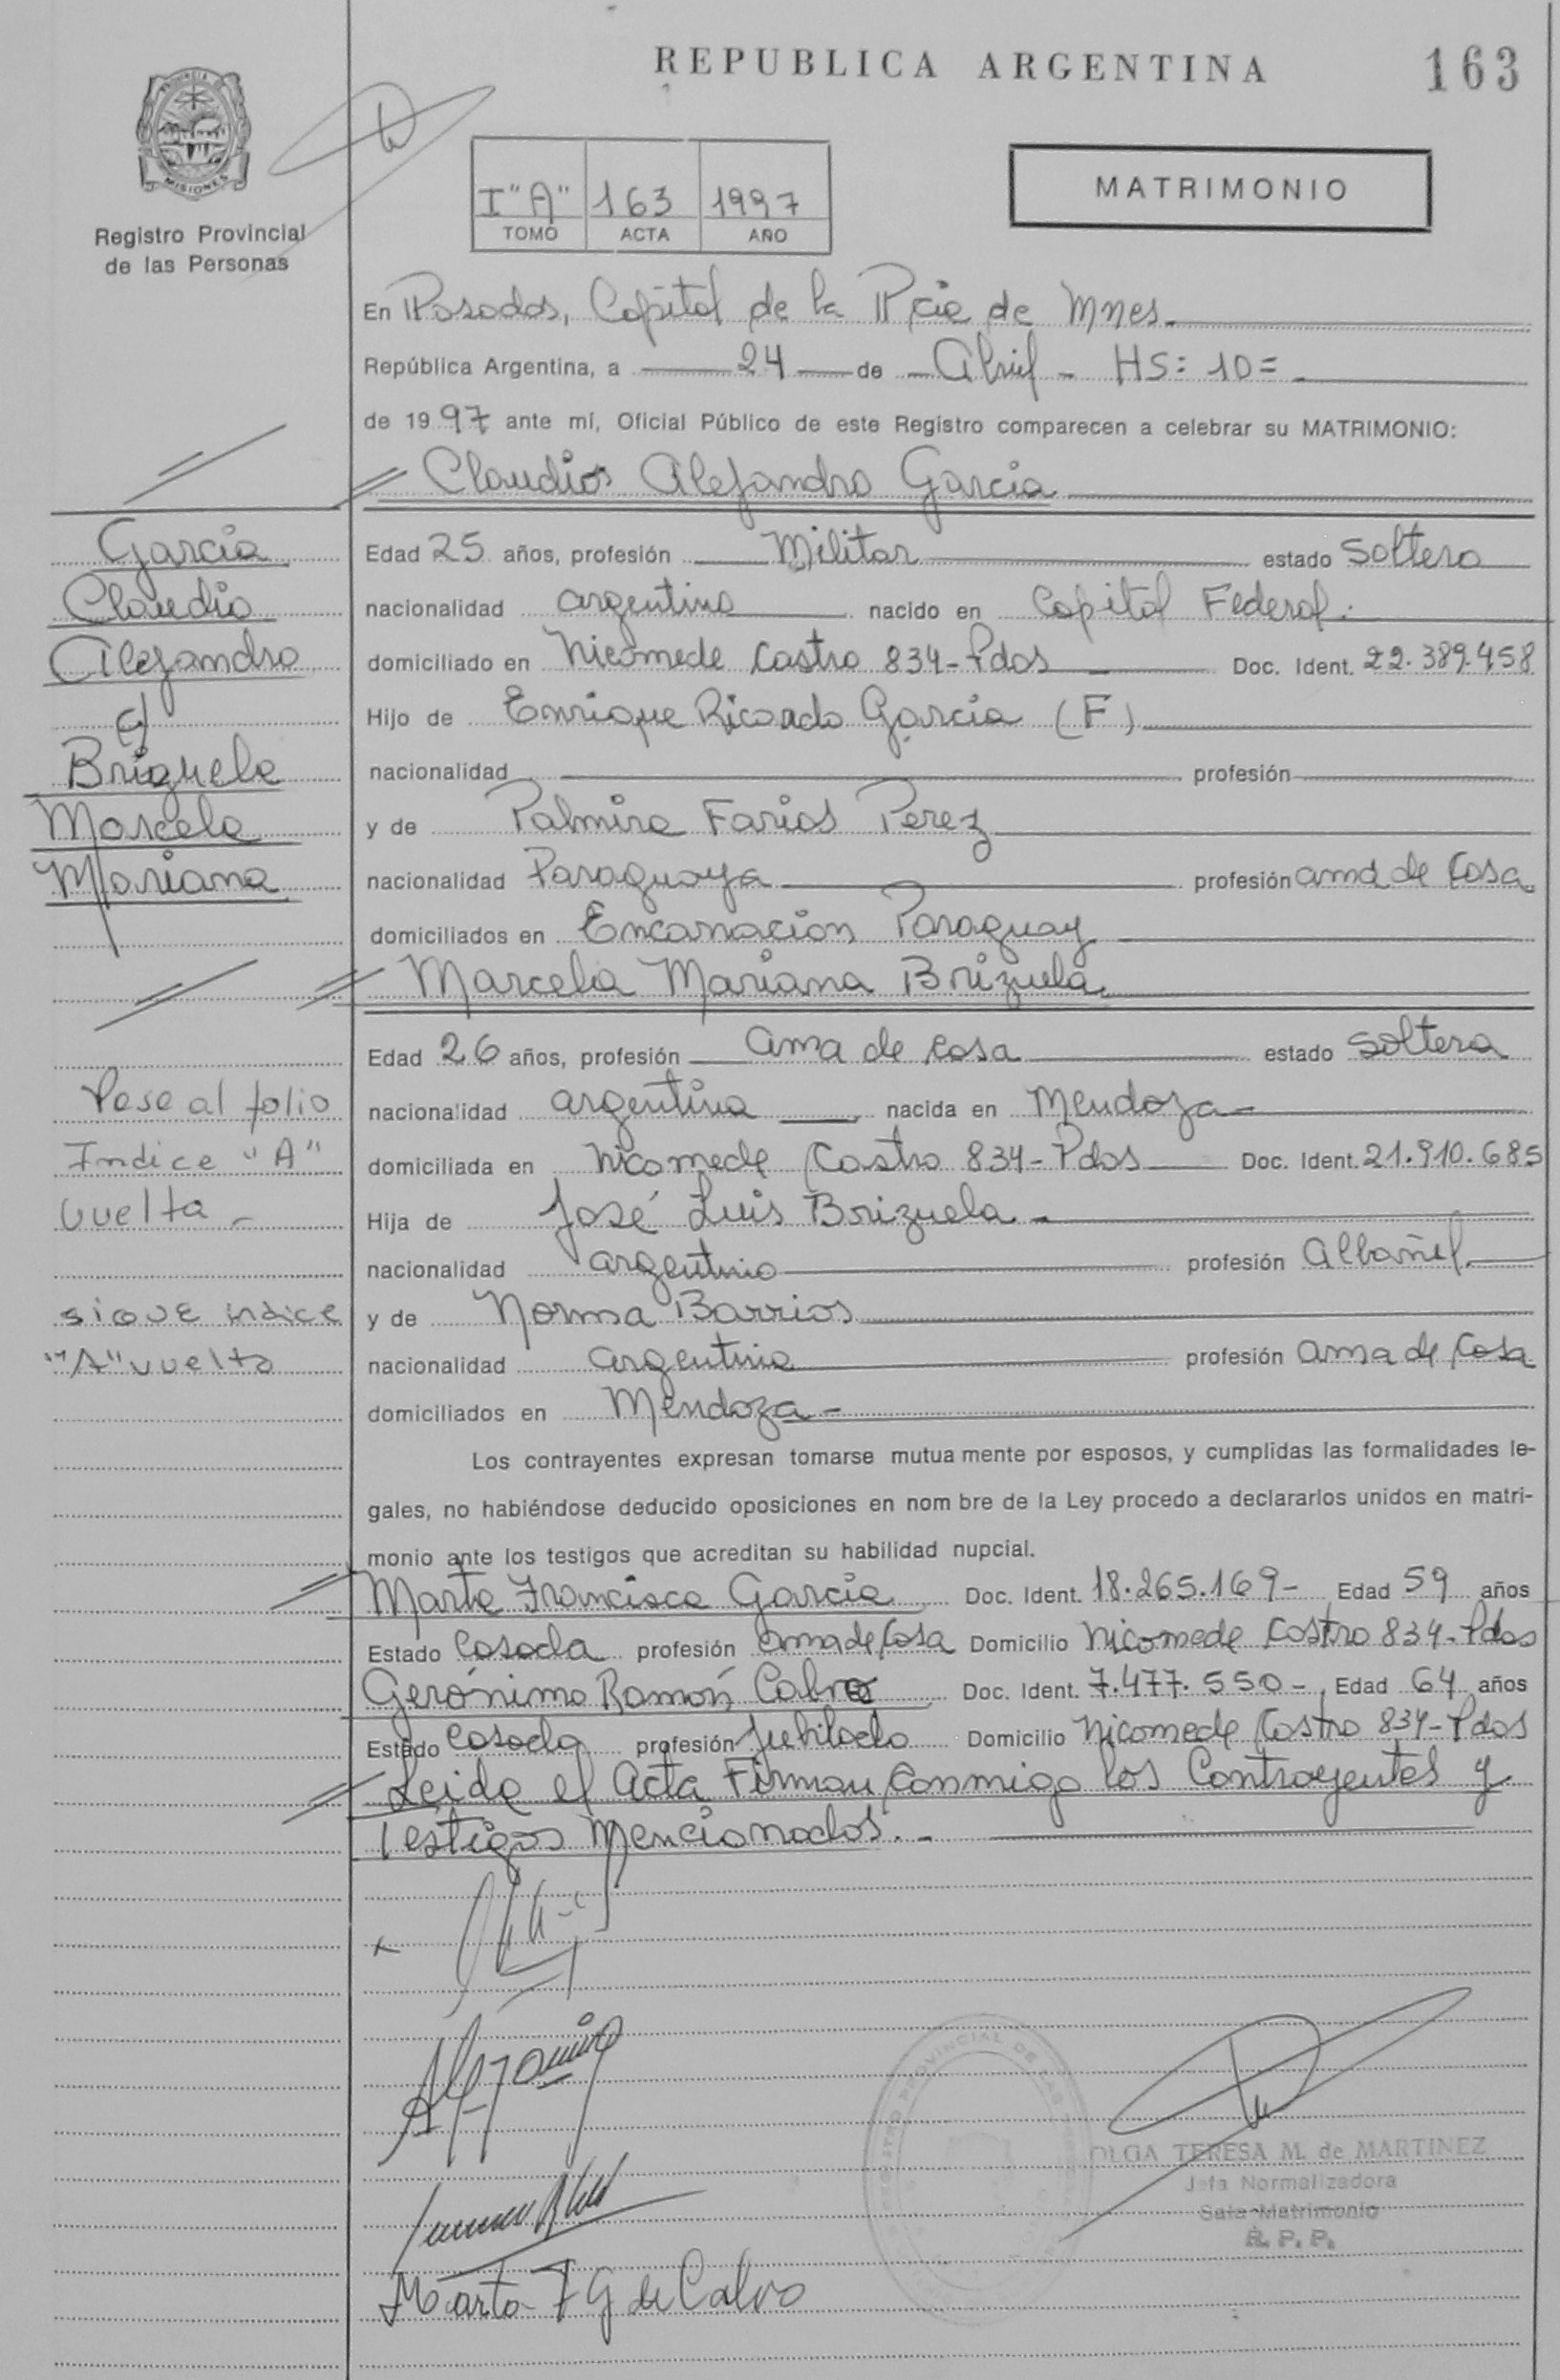 REPUBLICA ARGENTINA
163
PROVINCIA DE
MISIONES
Registro Provincial
de las Personas
I "A" 163 1997
TOMO ACTA AÑO
MATRIMONIO
En Posadas, Capital de la Pcia de Mnes.
República Argentina, a 24 de Abril - HS: 10=
de 1997 ante mí, Oficial Público de este Registro comparecen a celebrar su MATRIMONIO:
Claudio Alejandro García
García
Claudio
Alejandro
c/
Brizuela
Marcela
Mariana
Edad 25 años, profesión Militar estado Soltero
nacionalidad argentino nacido en Capital Federal.
domiciliado en Nicomede Castro 834-Pdas Doc. Ident. 22.389.458
Hijo de Enrique Ricardo García (F)
nacionalidad profesión
y de Palmira Farias Perez
nacionalidad Paraguaya profesión ama de Casa
domiciliados en Encarnación Paraguay
Marcela Mariana Brizuela
Edad 26 años, profesión ama de casa estado Soltera
nacionalidad argentina nacida en Mendoza-
domiciliada en Nicomede Castro 834-Pdas Doc. Ident. 21.910.685
Hija de José Luis Brizuela -
nacionalidad argentino profesión Albañil
y de Norma Barrios
nacionalidad argentina profesión ama de Casa
domiciliados en Mendoza-
Pase al folio
Indice "A"
vuelta -
sigue indice
"A" vuelta
Los contrayentes expresan tomarse mutua mente por esposos, y cumplidas las formalidades le-
gales, no habiéndose deducido oposiciones en nom bre de la Ley procedo a declararlos unidos en matri-
monio ante los testigos que acreditan su habilidad nupcial.
Marta Francisca García Doc. Ident. 18.265.169- Edad 59 años
Estado Casada profesión ama de Casa Domicilio Nicomede Castro 834-Pdas
Gerónimo Ramón Calvo Doc. Ident. 7.477.550- Edad 64 años
Estado Casado profesión Jubilado Domicilio Nicomede Castro 834-Pdas
Leida el Acta Firman conmigo los Contrayentes y
Testigos Mencionados.-
Marta F G de Calvo
PROVINCIAL DE LAS
OLGA TERESA M. de MARTINEZ
Jefa Normalizadora
Sala Matrimonio
R. P. P.